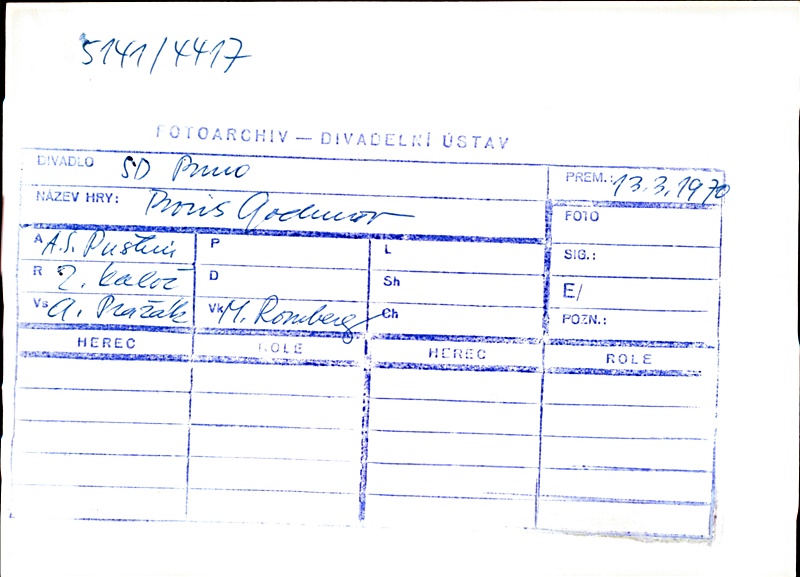 5141/4417
FOTOARCHIV — DIVADELNÍ ÚSTAV
DIVADLO SD Brno
PREM.: 13.3.1970
NÁZEV HRY: Boris Godunov
FOTO
A A.S. Puškin
P
L
SIG.:
R Z. Kaloč
D
Sh
E/
Vs A. Pražák
Vk M. Romberg
Ch
POZN.:
HEREC ROLE HEREC ROLE